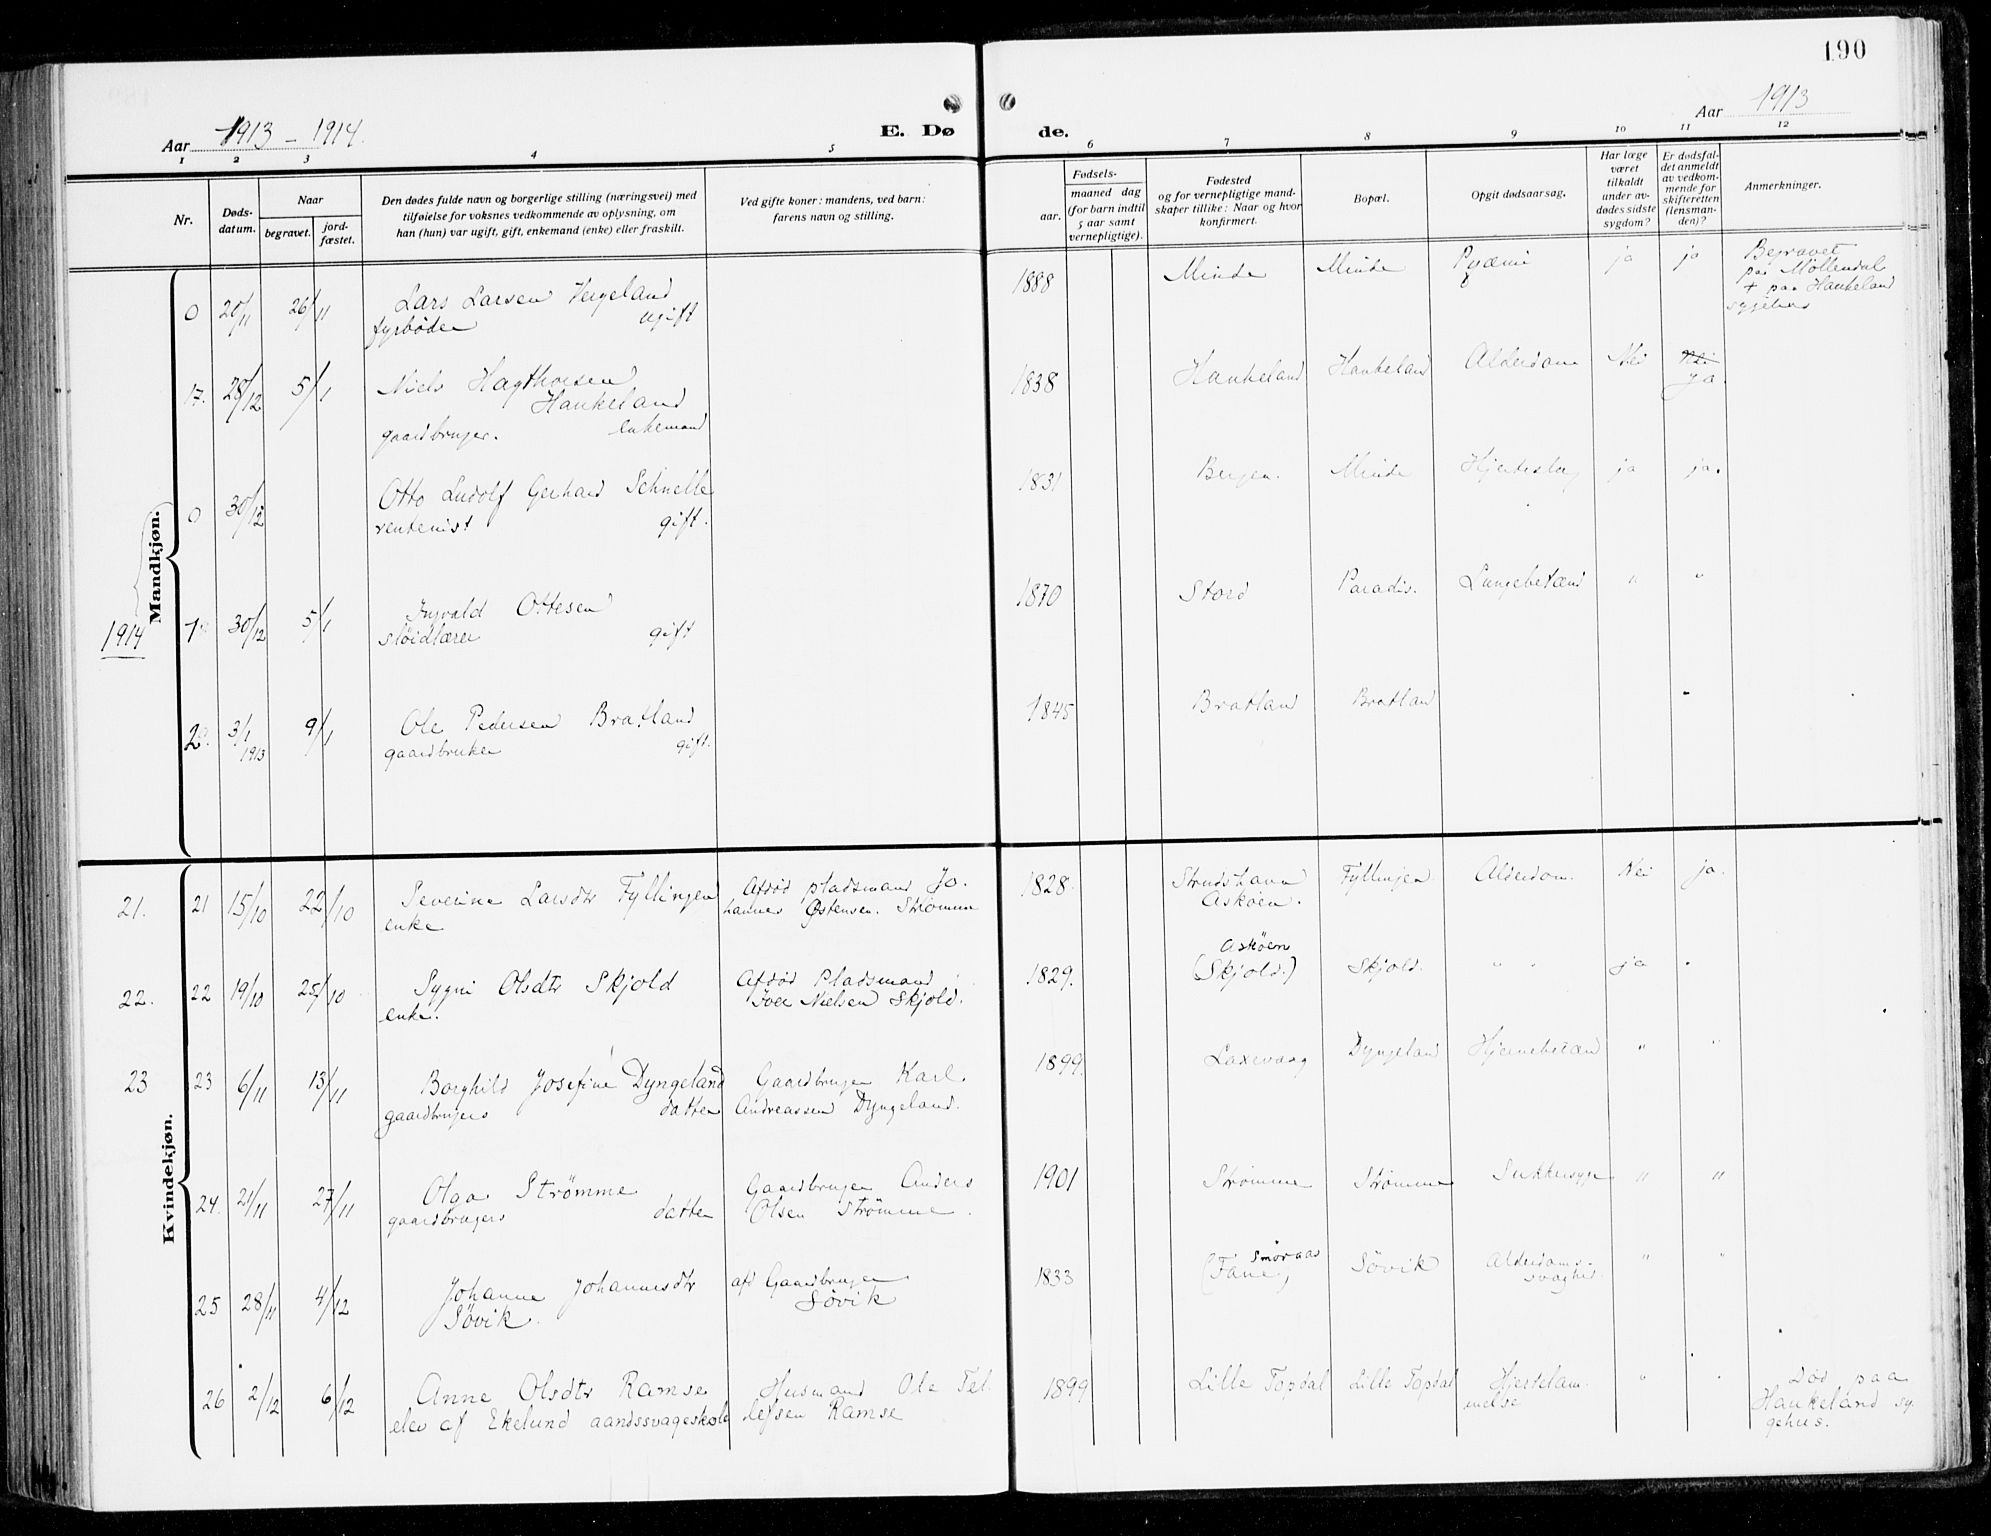 190
Aar 1913 – 1914.
E. Dø
de.
Aar 1913
1 2 3 4 5 6 7 8 9 10 11 12
Nr.
Døds-
datum.
Naar
begravet.
jord-
fæstet.
Den dødes fulde navn og borgerlige stilling (næringsvei) med
tilføielse for voksnes vedkommende av oplysning, om
han (hun) var ugift, gift, enkemand (enke) eller fraskilt.
Ved gifte koner: mandens, ved barn:
farens navn og stilling.
Fødsels-
aar.
maaned dag
(for barn indtil
5 aar samt
vernepligtige).
Fødested
og for vernepligtige mand-
skaper tillike: Naar og hvor
konfirmert.
Bopæl.
Opgit dødsaarsag.
Har læge
været
tilkaldt
under av-
dødes sidste
sygdom?
Er dødsfal-
det anmeldt
av vedkom-
mende for
skifteretten
(lensman-
den)?
Anmerkninger.
Mandkjøn.
0 20/11 26/11 Lars Larsen Hergeland 1888 Minde Minde Pyæmi ja ja Begravet
fyrbøder ugift
paa Möllendal
+ paa Haukeland
sygehus
17. 28/12 5/1 Niels Hagthorsen 1838 Haukeland Haukeland Alderdom Nei Nei
Haukeland ja.
gaardbruger. enkemand
0 30/12 Otto Ludolf Gerhard Schnelle 1831 Bergen. Minde Hjerteslag ja ja.
rentenist gift.
1914
1 30/12 5/1 Ingvald Ottesen 1870 Stord Paradis. Lungebetænd " "
sløidlærer gift
2 3/1 1913 9/1 Ole Pedersen Bratland 1845 Bratlan Bratlan
gaardbruker gift.
Kvindekjøn.
21. 21 15/10 22/10 Severine Larsdtr Fyllingen Afdød pladsmand Jo- 1828. Strudshavn Fyllingen Alderdom. Nei ja.
enke hannes Østensen. Strømme Askøen.
22. 22 19/10 25/10 Sygni Olsdtr Skjold Afdød Pladsmand 1829. Askøen Skjold. " " ja
enke. Iver Nielsen Skjold. (Skjold.)
23 23 6/11 13/11 Borghild Josefine Dyngeland Gaardbruger Karl 1899. Laxevaag Dyngeland Hjernebetæn " "
gaardbrugers datter Andreassen Dyngeland.
24. 21/11 27/11 Olga Strømme Gaardbruger Anders 1901 Strømme Strømme Sukkersyge " "
gaardbrugers datter Olsen Strømme.
25 28/11 4/12 Johanne Johannesdtr afd Gaardbruger 1833 Smøraas Søvik Alderdoms- " "
Søvik. Søvik (Fane) svaghed
26 2/12 6/12 Anne Olsdtr Ramse Husmand Ole Tel- 1899 Lille Topdal Lille Topdal Hjertelam- " Død paa
elev af Ekelund aandssvageskole lefsen Ramse melse Haukeland sy-
gehus.